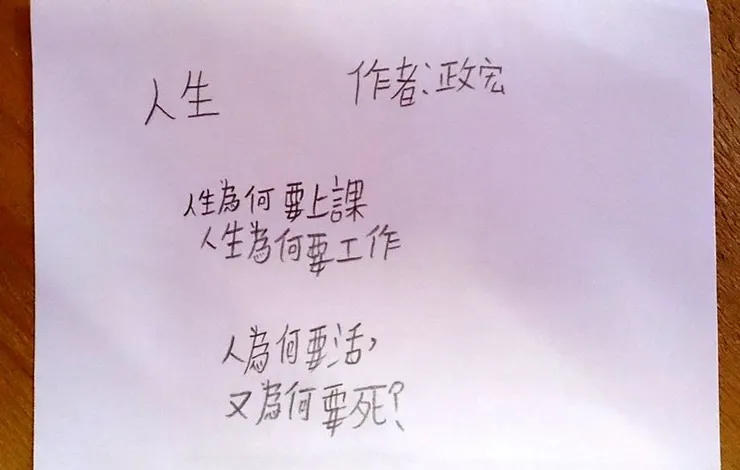 人生 作者:政宏
人生為何要上課
人生為何要工作
人為何要活,
又為何要死?